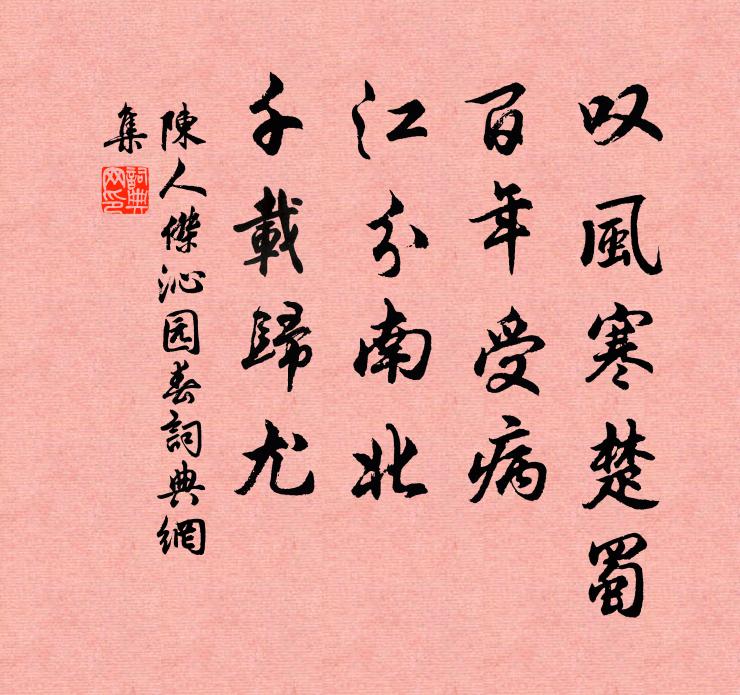 叹風寒楚蜀
百年受病
江分南北
千載歸尤
陳人傑沁园春詞典網
集
詞典网印